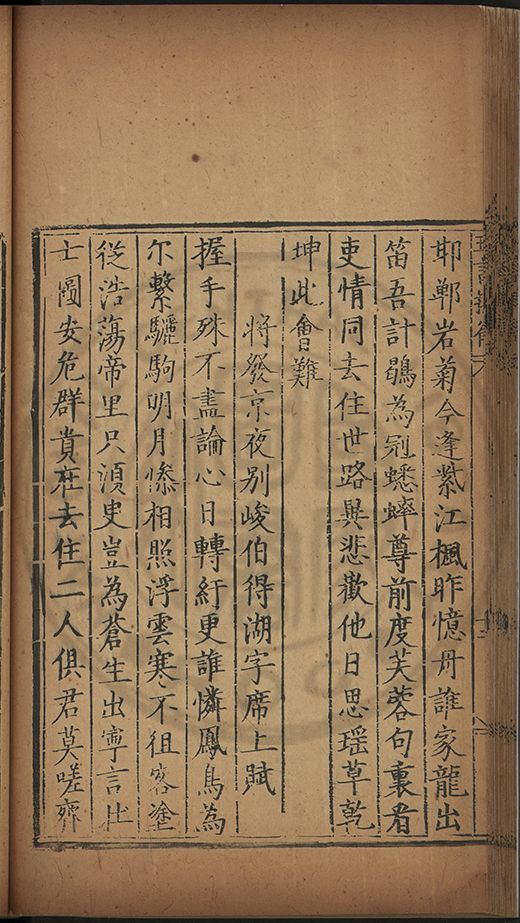 邯鄲岩菊今逢紫江楓昨憶丹誰家龍出
笛吾計鶡為冠蟋蟀尊前度芙蓉句裏看
吏情同去住世路異悲歡他日思瑶草乾
坤此會難
將發京夜别峻伯得湖字席上賦
握手殊不盡論心日轉紆更誰憐鳳鳥為
尔繫驪駒明月慘相照浮雲寒不徂客塗
從浩蕩帝里只須臾豈為蒼生出寧言壮
士圖安危群貴在去住二人俱君莫嗟齊